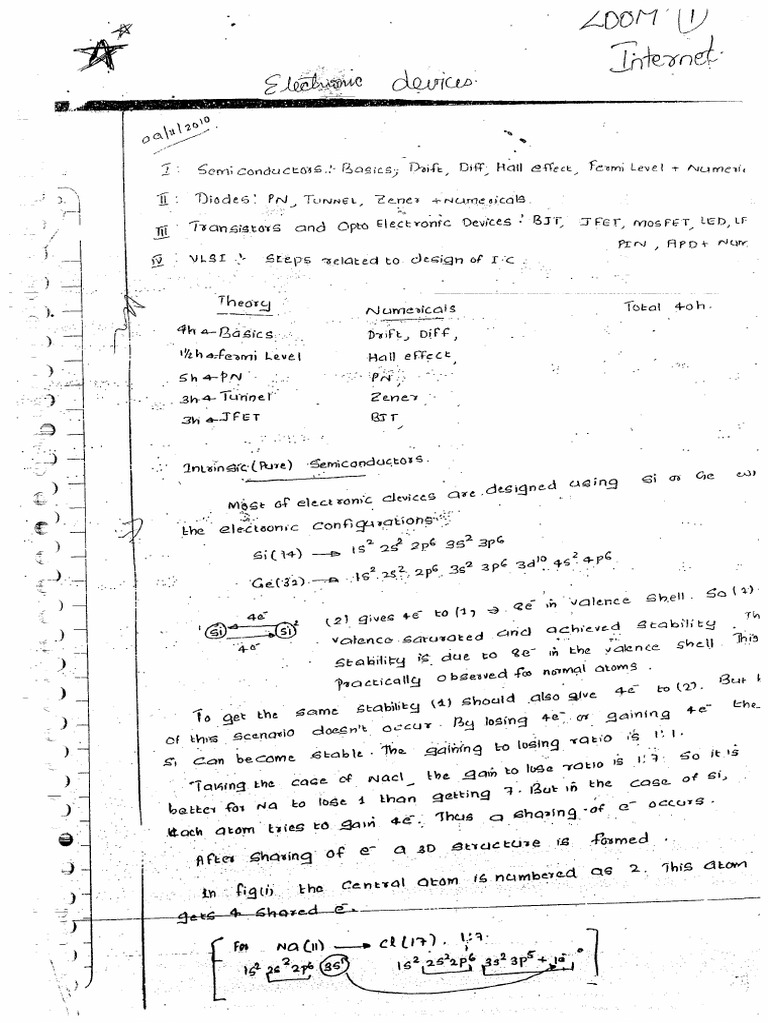 LDOM (1)
Internet
Electronic devices.
09/11/2010
I : Semiconductors : Basics, Drift, Diff, Hall effect, Fermi Level + Numeri
II : Diodes : PN, TUNNEL, Zener + Numericals.
III Transistors and Opto Electronic Devices : BJT, JFET, MOSFET, LED,
PIN, APD + Num
IV : VLSI : Steps related to design of I.C
Theory Numericals Total 40h.
4h Basics Drift, Diff,
1½h Fermi Level Hall effect,
5h PN PN,
3h Tunnel Zener
3h JFET BJT,
Intrinsic (Pure) Semiconductors.
Most of electronic devices are designed using Si or Ge
the electronic configurations
Si(14) → 1s² 2s² 2p6 3s² 3p6
Ge(32) → 1s² 2s² 2p6 3s² 3p6 3d10 4s² 4p6
1 Si 4e⁻ 4e⁻ Si 2
(2) gives 4e⁻ to (1) ⇒ 8e⁻ in valence shell. So (1)
valence saturated and achieved stability. Th
stability is due to 8e⁻ in the valence shell. This
Practically observed for normal atoms.
To get the same stability (1) should also give 4e⁻ to (2). But
of this scenario doesn't occur. By losing 4e⁻ or gaining 4e⁻ the
Si can become stable. The gaining to losing ratio is 1:1.
Taking the case of Nacl, the gain to lose ratio is 1:7. So it is
better for Na to lose 1 than getting 7. But in the case of Si,
each atom tries to gain 4e⁻. Thus a sharing of e⁻ occurs.
After sharing of e⁻ a 3D structure is formed.
In fig(i) the Central atom is numbered as 2. This atom
gets 4 shared e⁻.
[For Na(11) → Cl(17). 1:7.
1s² 2s² 2p6 3s¹ 1s² 2s² 2p6 3s² 3p5 + 1e⁻]